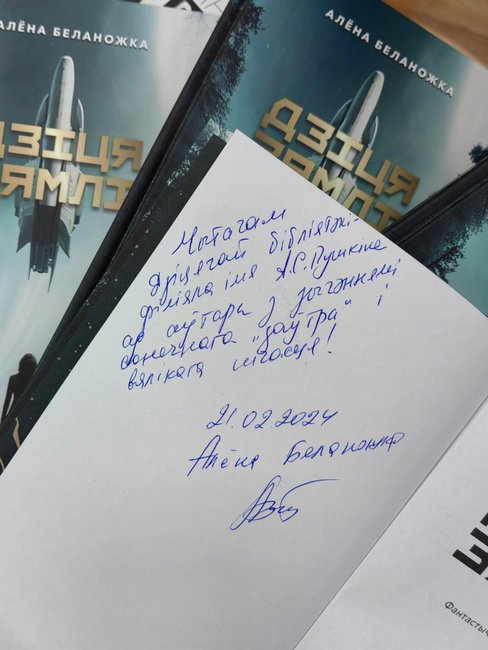 АЛЁНА БЕЛАНОЖКА
ДЗІЦЯ
ЗЯМЛІ
АЛЁНА БЕЛАНОЖКА
ДЗІЦЯ
ЗЯМЛІ
Чытачам
дзіцячай бібліятэкі-
філіяла імя А.С. Пушкіна
ад аўтара з жаданнямі
сонечнага "заўтра" і
вялікага шчасця!
21.02.2024
Алёна Беланожка